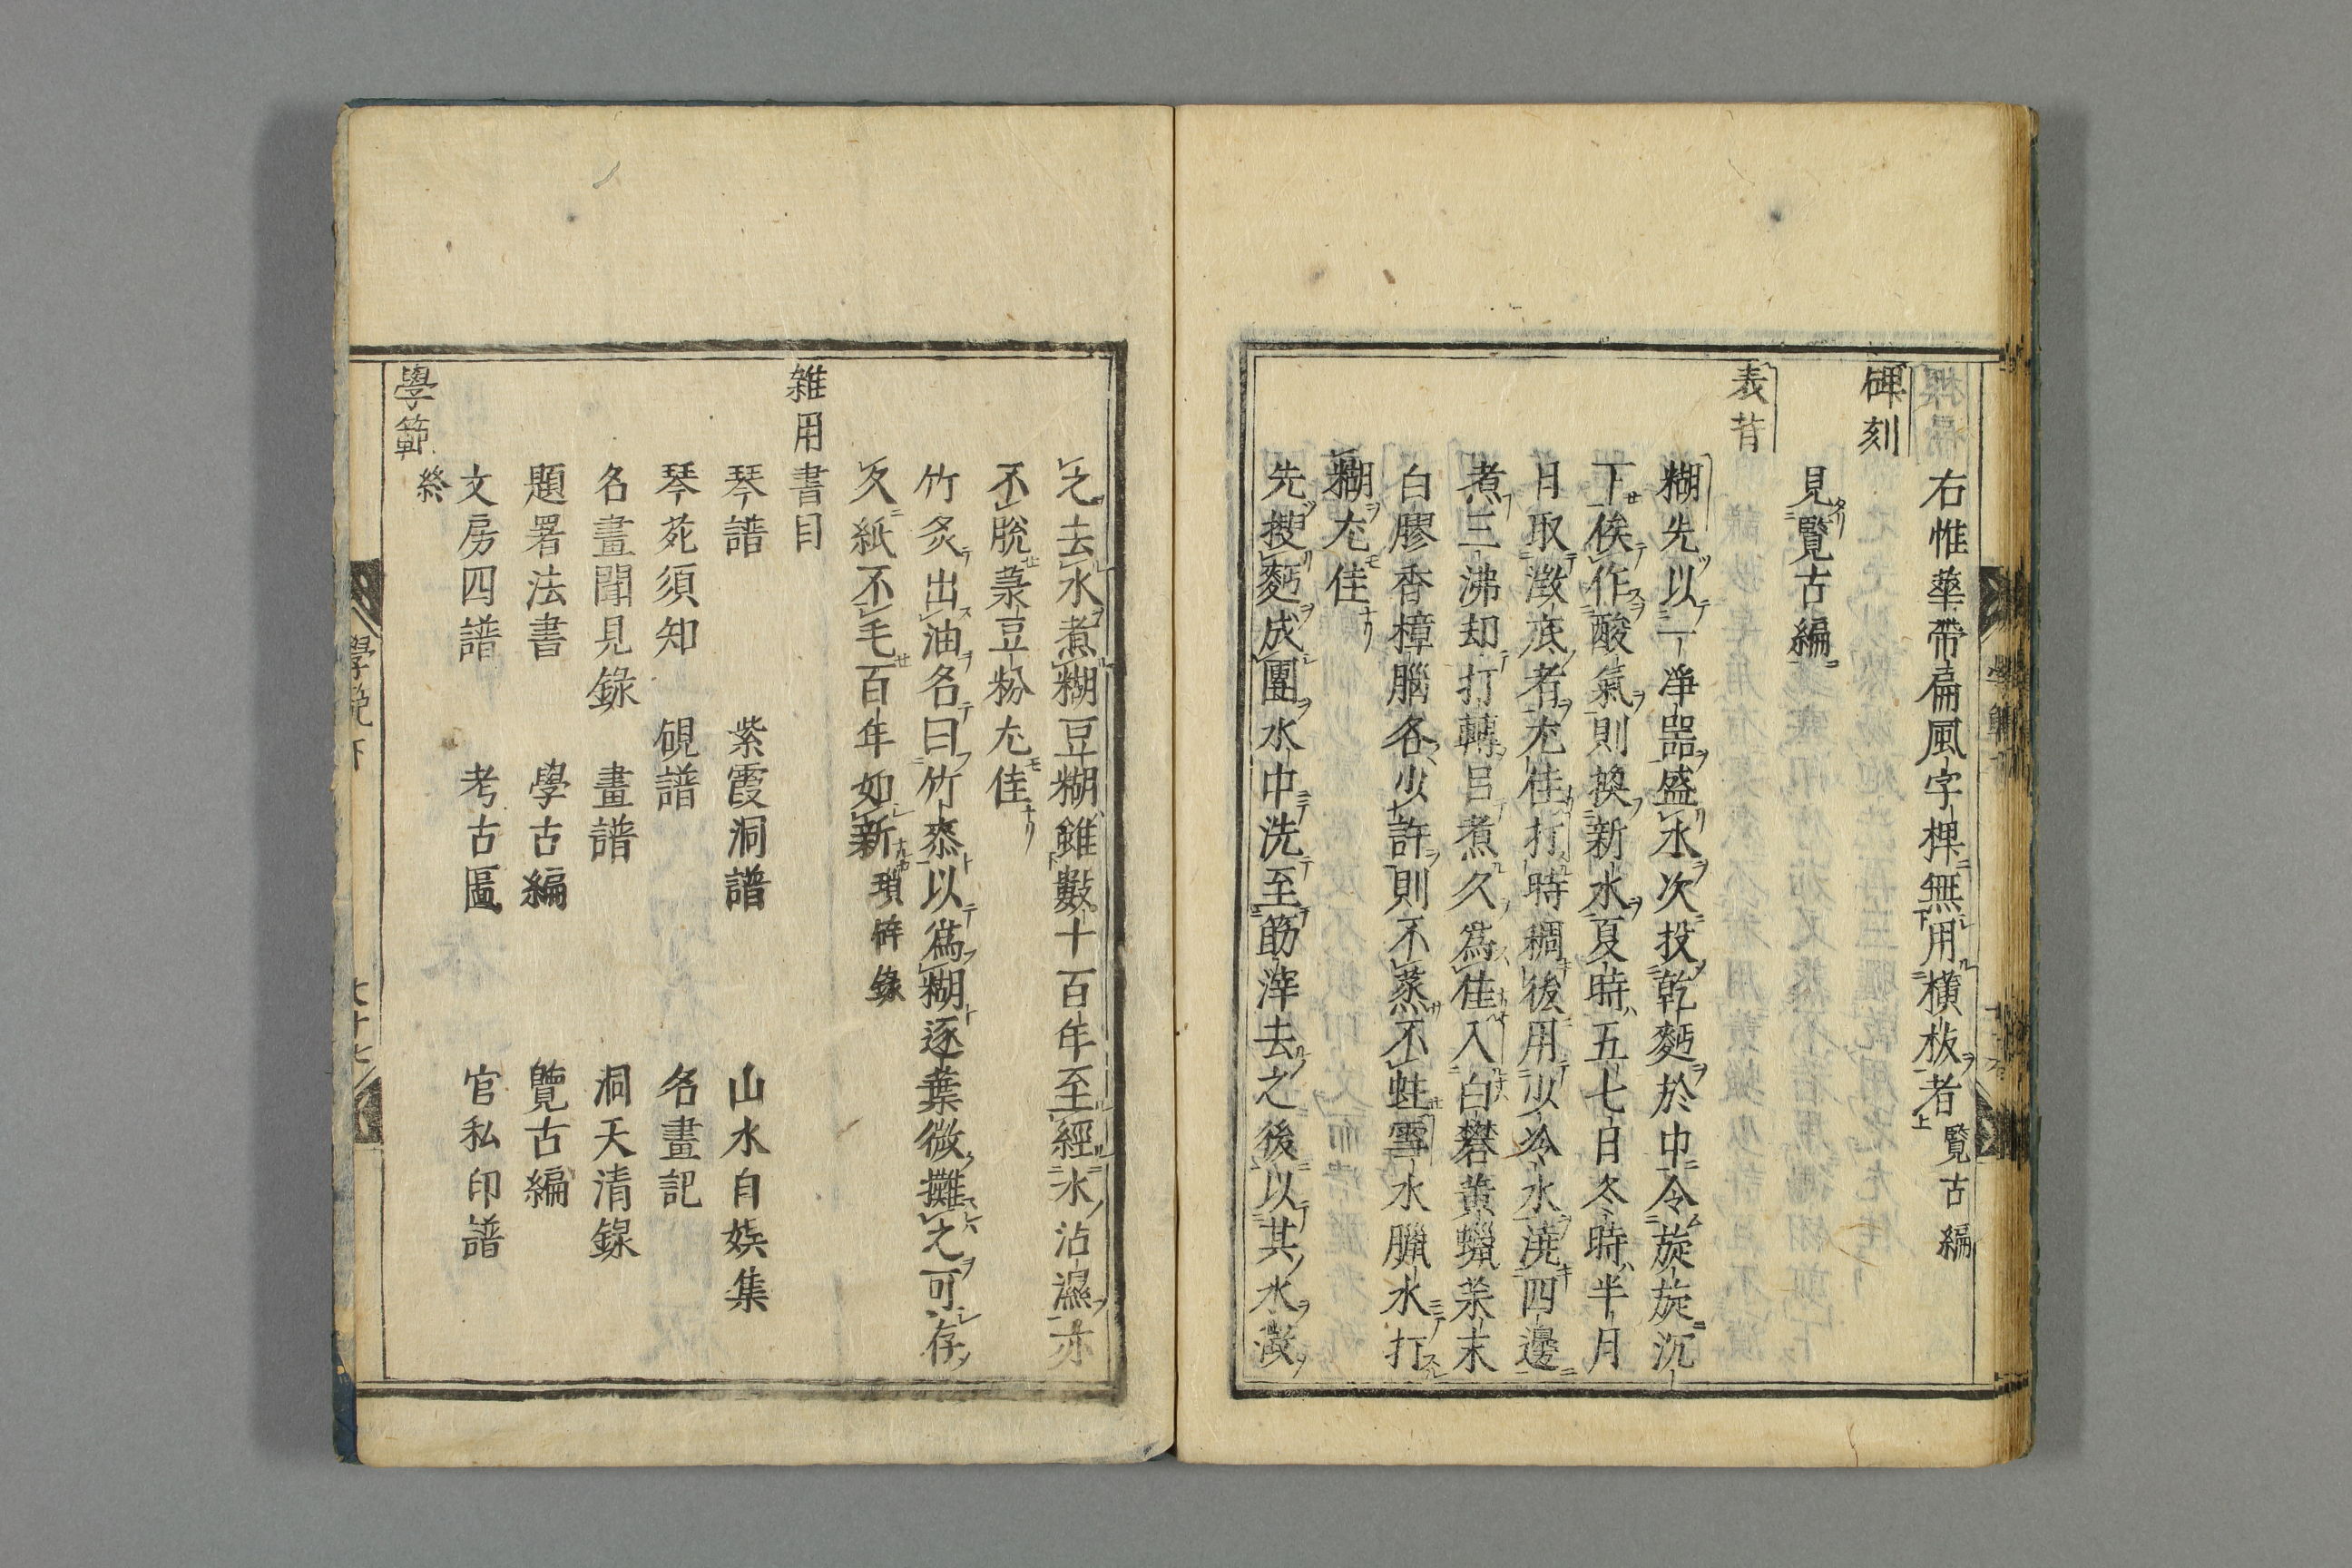 右惟華帶扁風字棵無用橫板者覽古編
碑刻
見覽古編
表背
糊先以一淨器盛水次投乾麪於中令旋旋沉
下俟作酸氣則換新水夏時五七日冬時半月
日取澂底者尤佳打時稠後用少冷水澆四邊
煮三沸却打轉呂煮久爲佳入白礬黃蠟茶末
白膠香樟腦各少許則不蒸不蛀雪水臘水打
糊尤佳
先搜麪成團水中洗至筋滓去之後以其水澂
之去水煮糊豆糊雖數十百年至經水沾濕亦
不脫菉豆粉尤佳
竹炙出油名曰竹桼以爲糊逐葉微攤之可存
久紙不毛百年如新瑣碎錄
雜用書目
琴譜　紫霞洞譜　山水自娛集
琴苑須知　硯譜　名畫記
名畫聞見錄　畫譜　洞天清錄
題署法書　學古編　覽古編
文房四譜　考古圖　官私印譜
學範終